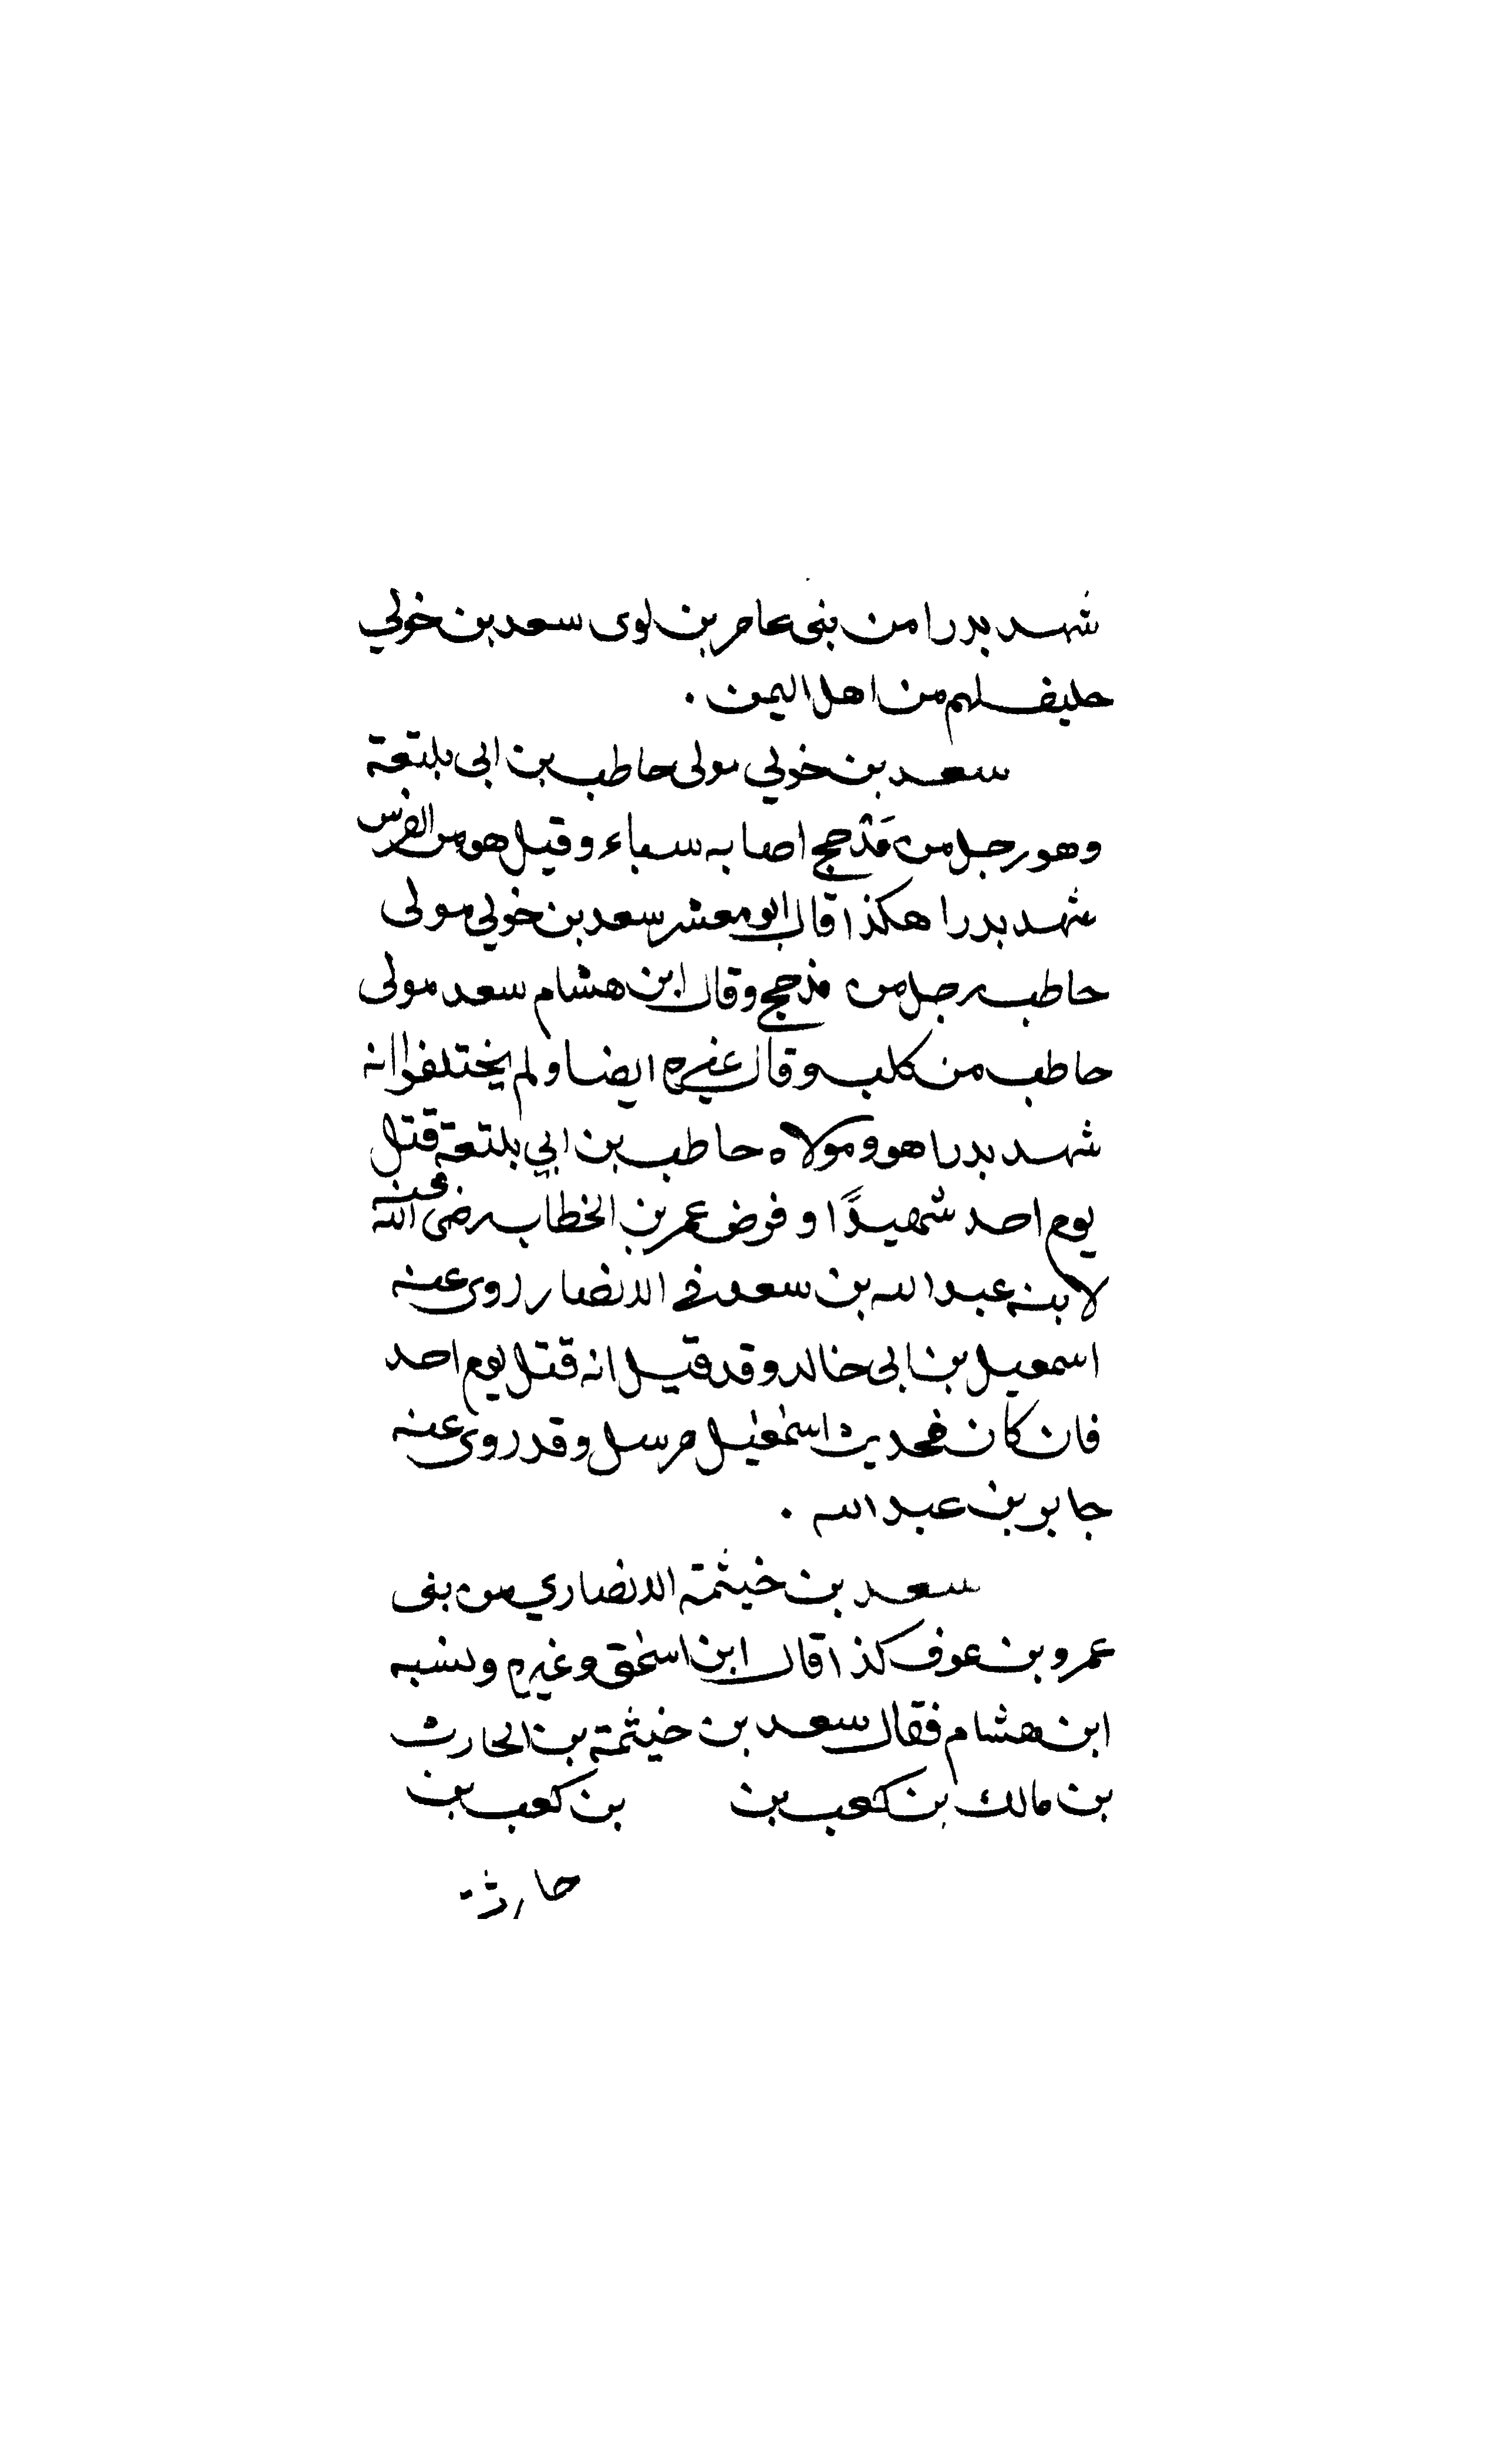 شهد بدرا من بنى عامر بن لوى سعد بن خولي
حليف لهم من اهل اليمن .
سعد بن خولي مولى حاطب بن ابى بلتعة
وهو رجل من مَذحج اصابه سباء وقيل هو من الفرس
شهد بدرا هكذا قال ابو معشر سعد بن خولي مولى
حاطب رجل من مذحج وقال ابن هشام سعد مولى
حاطب من كلب وقال غيره ايضا ولم يختلفوا انه
شهد بدرا هو ومولاه حاطب بن ابي بلتعة قتل
يوم احد شهيدًا وفرض عمر بن الخطاب رضى الله عنه
لابنه عبد الله بن سعد في الانصار روى عنه
اسمعيل بن ابى خالد وقد قيل انه قتل يوم احد
فان كان فحديث اسمعيل مرسل وقد روى عنه
جابر بن عبد الله .
سعد بن خيثمة الانصاري من بنى
عمرو بن عوف كذا قال ابن اسحق وغيره ونسبه
ابن هشام فقال سعد بن خيثمة بن الحارث
بن مالك بن كعب بن بن كعب بن
حارثة